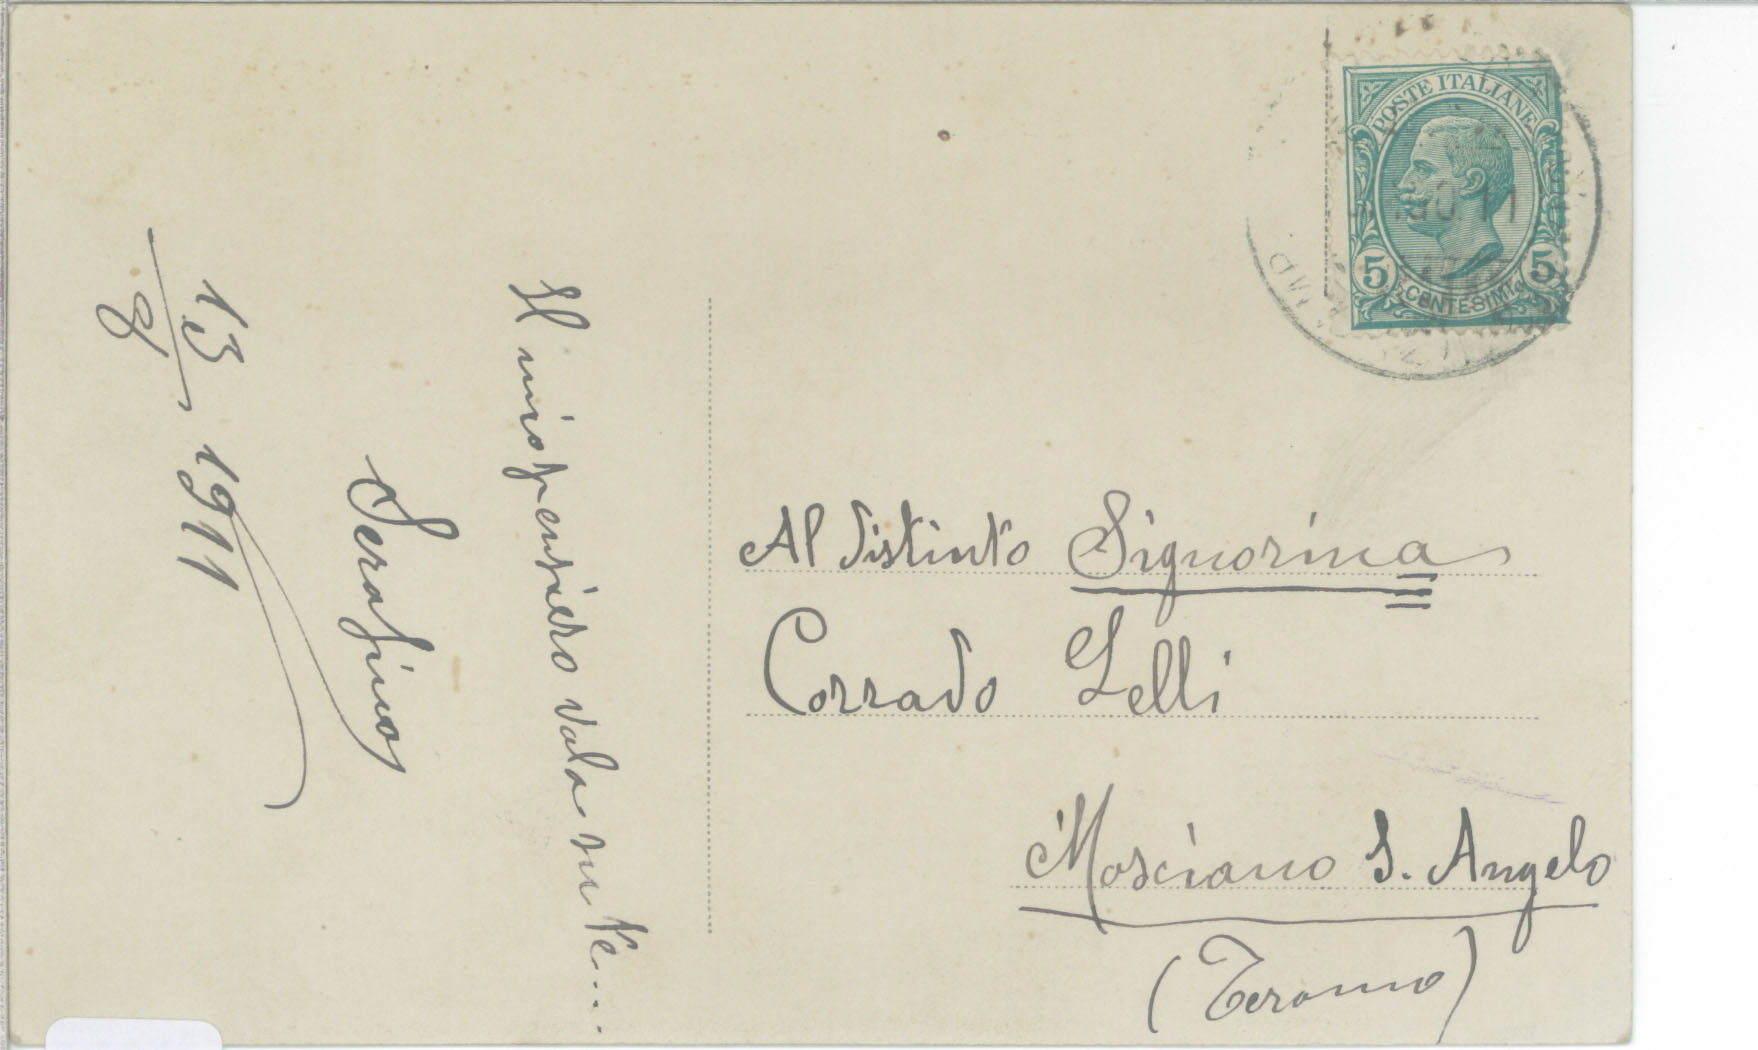 Il mio pensiero vola su te....
Serafino
13/8 1911
POSTE ITALIANE
5 5
CENTESIMI
Al distinto Signorina
Corrado Lelli
Mosciano S. Angelo
(Teramo)